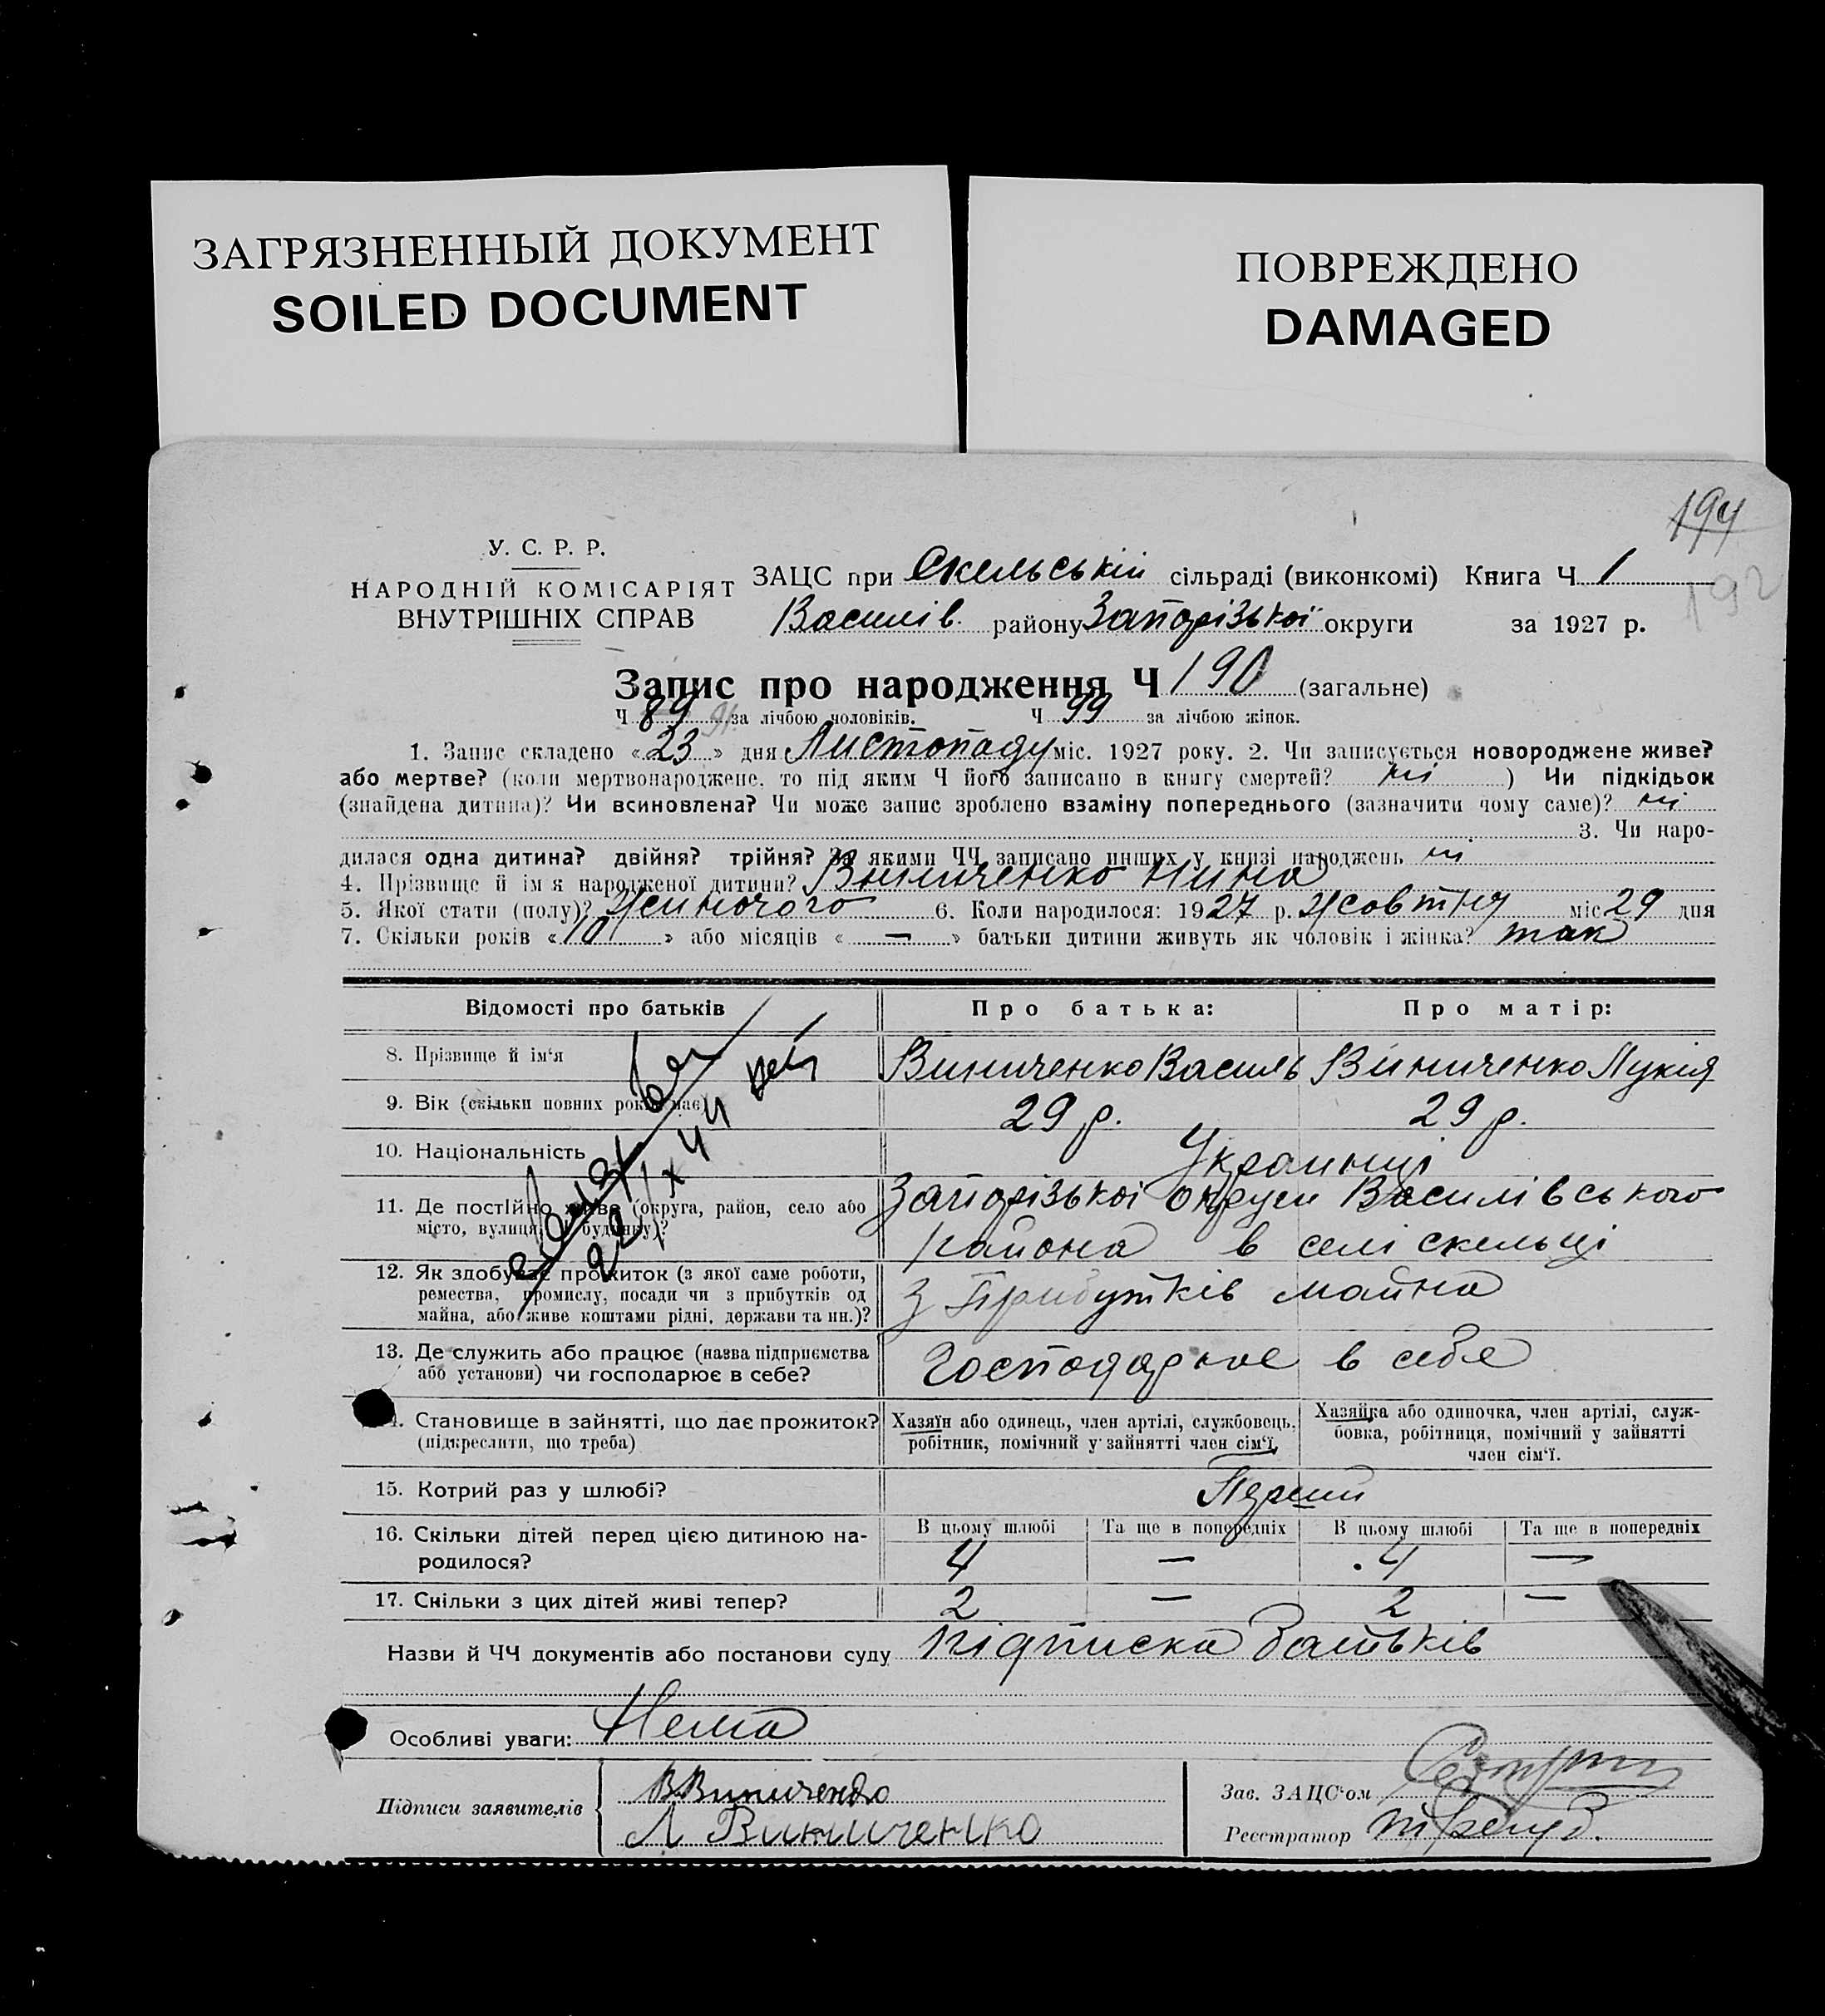 ЗАГРЯЗНЕННЫЙ ДОКУМЕНТ
SOILED DOCUMENT
ПОВРЕЖДЕНО
DAMAGED
194
192
У. С. Р. Р.
НАРОДНІЙ КОМІСАРІЯТ
ВНУТРІШНІХ СПРАВ
ЗАЦС при Скельській сільраді (виконкомі) Книга Ч 1
Василів. району Запорізької округи за 1927 р.
Запис про народження Ч 190 (загальне)
Ч 89 91 за лічбою чоловіків. Ч 99 за лічбою жінок.
1. Запис складено «23» дня Листопаду міс. 1927 року. 2. Чи записується новороджене живе?
або мертве? (коли мертвонароджене, то під яким Ч його записано в книгу смертей? ні ) Чи підкідьок
(знайдена дитина)? Чи всиновлена? Чи може запис зроблено взаміну попереднього (зазначити чому саме)? ні
3. Чи наро-
дилася одна дитина? двійня? трійня? За якими ЧЧ записано инших у книзі народжень ні
4. Прізвище й ім'я народженої дитини? Виниченко Нина
5. Якої стати (полу)? Жиночого 6. Коли народилося: 1927 р. Жовтню міс 29 дня
7. Скільки років «10» або місяців «—» батьки дитини живуть як чоловік і жінка? так
Відомості про батьків Про батька: Про матір:
8. Прізвище й ім'я Виниченко Василь Виниченко Лукія
9. Вік (скільки повних років має) 29 р. 29 р.
10. Національність Украинці
11. Де постійно живе (округа, район, село або Запорізької округи Василівського
місто, вулиця, будинку)? района в селі скельці
12. Як здобуває прожиток (з якої саме роботи,
ремества, промислу, посади чи з прибутків од
майна, або живе коштами рідні, держави та ин.)? З Прибутків майна
13. Де служить або працює (назва підприємства
або установи) чи господарює в себе? Господарює в себе
14. Становище в зайнятті, що дає прожиток?
(підкреслити, що треба)
Хазяїн або одинець, член артілі, службовець,
робітник, помічний у зайнятті член сім'ї.
Хазяйка або одиночка, член артілі, служ-
бовка, робітниця, помічний у зайнятті
член сім'ї.
15. Котрий раз у шлюбі? Перший
В цьому шлюбі Та ще в попередніх В цьому шлюбі Та ще в попередніх
16. Скільки дітей перед цією дитиною на-
родилося? 4 — 4 —
17. Скільки з цих дітей живі тепер? 2 — 2 —
Назви й ЧЧ документів або постанови суду підписка батьків
Особливі уваги: Нема
Підписи заявителів
В Виниченко
Л Виниченко
Зав. ЗАЦС'ом
Реєстратор